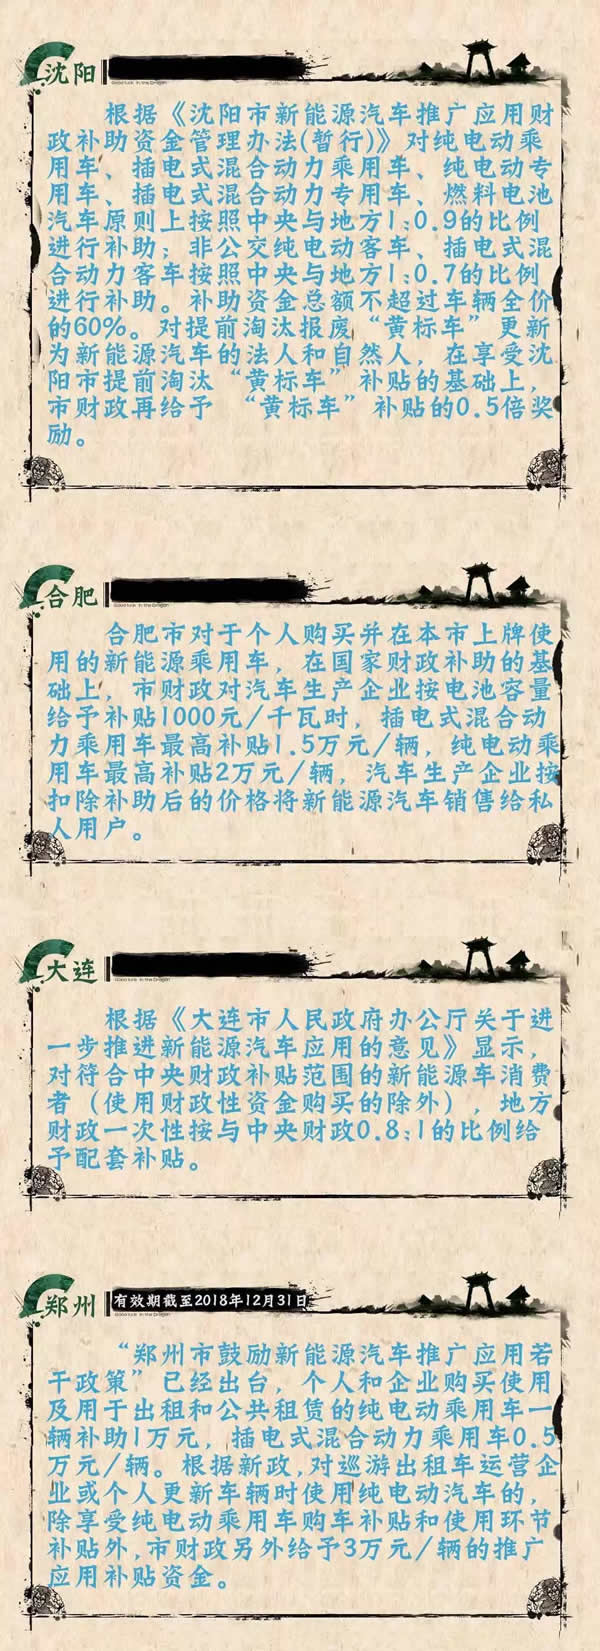 沈阳
Good luck in the Dragon
根据《沈阳市新能源汽车推广应用财
政补助资金管理办法(暂行)》对纯电动乘
用车、插电式混合动力乘用车、纯电动专
用车、插电式混合动力专用车、燃料电池
汽车原则上按照中央与地方1:0.9的比例
进行补助；非公交纯电动客车、插电式混
合动力客车按照中央与地方1:0.7的比例
进行补助。补助资金总额不超过车辆全价
的60%。对提前淘汰报废“黄标车”更新
为新能源汽车的法人和自然人，在享受沈
阳市提前淘汰“黄标车”补贴的基础上，
市财政再给予 “黄标车”补贴的0.5倍奖
励。
合肥
Good luck in the Dragon
合肥市对于个人购买并在本市上牌使
用的新能源乘用车，在国家财政补助的基
础上，市财政对汽车生产企业按电池容量
给予补贴1000元/千瓦时，插电式混合动
力乘用车最高补贴1.5万元/辆，纯电动乘
用车最高补贴2万元/辆，汽车生产企业按
扣除补助后的价格将新能源汽车销售给私
人用户。
大连
Good luck in the Dragon
根据《大连市人民政府办公厅关于进
一步推进新能源汽车应用的意见》显示，
对符合中央财政补贴范围的新能源车消费
者（使用财政性资金购买的除外），地方
财政一次性按与中央财政0.8:1的比例给
予配套补贴。
郑州
有效期截至2018年12月31日
Good luck in the Dragon
“郑州市鼓励新能源汽车推广应用若
干政策”已经出台，个人和企业购买使用
及用于出租和公共租赁的纯电动乘用车一
辆补助1万元，插电式混合动力乘用车0.5
万元/辆。根据新政,对巡游出租车运营企
业或个人更新车辆时使用纯电动汽车的，
除享受纯电动乘用车购车补贴和使用环节
补贴外,市财政另外给予3万元/辆的推广
应用补贴资金。